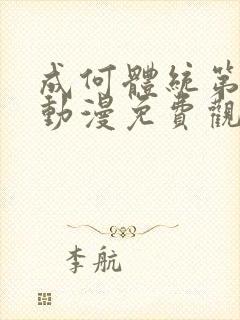 成何體統第
動漫免費觀
李航